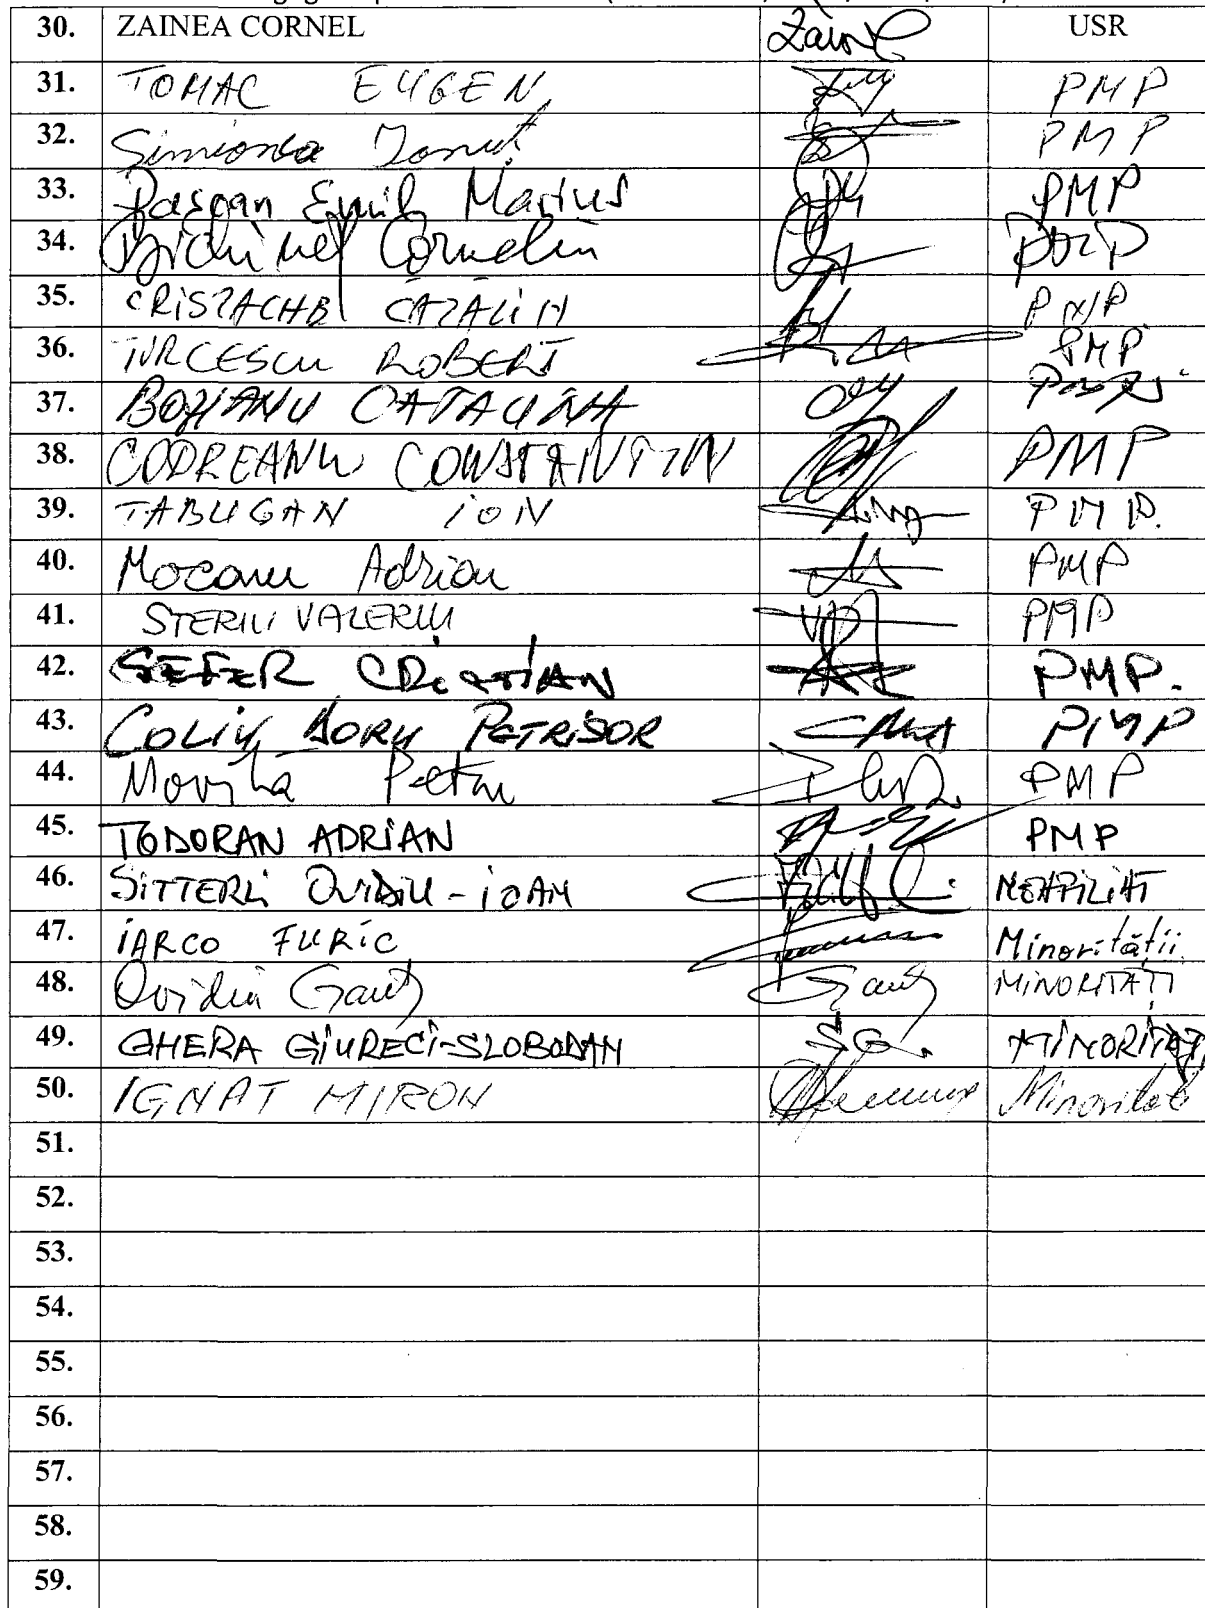 30. ZAINEA CORNEL Zain USR
31. TOMAC EUGEN PMP
32. Simionca Ionuț PMP
33. Pașcan Emil Marius PMP
34. Bichineț Corneliu PMP
35. CRISTACHE CĂTĂLIN PMP
36. TURCESCU ROBERT PMP
37. BOZIANU CATALINA
38. CODREANU CONSTANTIN PMP
39. TABUGAN ION PMP.
40. Mocanu Adrian PMP
41. STERIU VALERIU PMP
42. SEFER CRISTIAN PMP.
43. COLIU DORU PETRISOR PMP
44. Movila Petru PMP
45. TODORAN ADRIAN PMP
46. SITTERLI OVIDIU-IOAN NEAFILIAT
47. IARCO FURIC Minorități
48. Ovidiu Ganț Ganț MINORITATI
49. GHERA GIURECI-SLOBODAN SG. MINORITATI
50. IGNAT MIRON Minoritati
51.
52.
53.
54.
55.
56.
57.
58.
59.